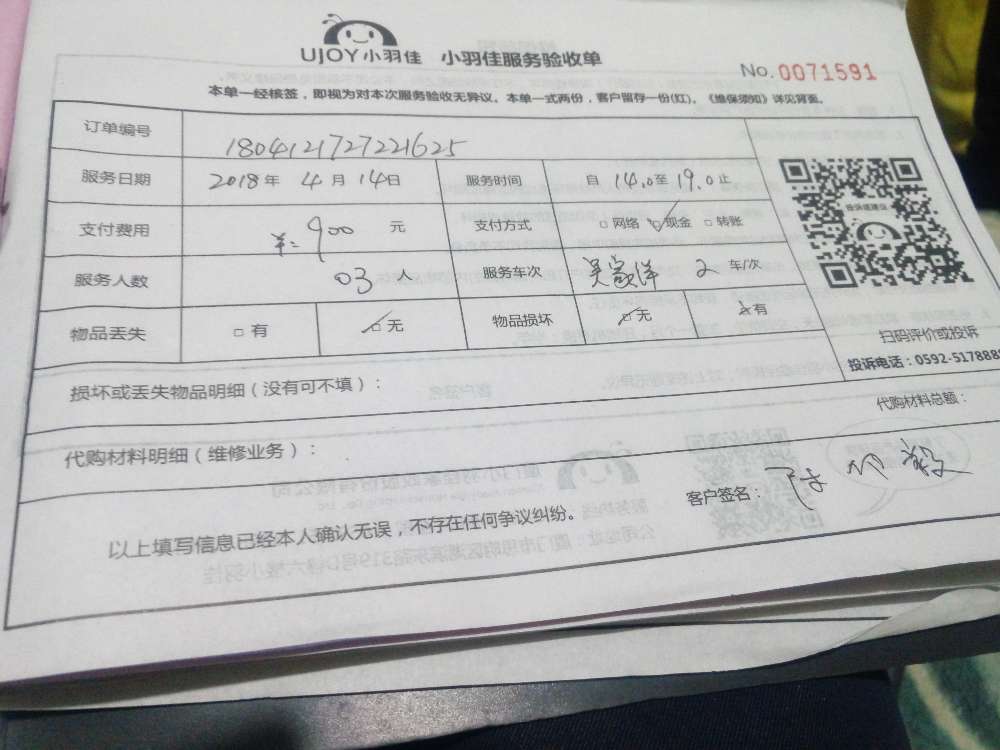 UJOY小羽佳 小羽佳服务验收单
No. 0071591
本单一经核签，即视为对本次服务验收无异议。本单一式两份，客户留存一份(红)。《维保须知》详见背面。
订单编号 180412172721625
服务日期 2018年 4月 14日 服务时间 自 14.0至 19.0止
支付费用 ¥: 900 元 支付方式 □网络 □现金 □转账
服务人数 03 人 服务车次 2 车/次
物品丢失 □有 □无 物品损坏 □无 □有
投诉或建议
扫码评价或投诉
投诉电话：0592-5178888
损坏或丢失物品明细（没有可不填）：
代购材料明细（维修业务）： 代购材料总额：
以上填写信息已经本人确认无误，不存在任何争议纠纷。 客户签名：